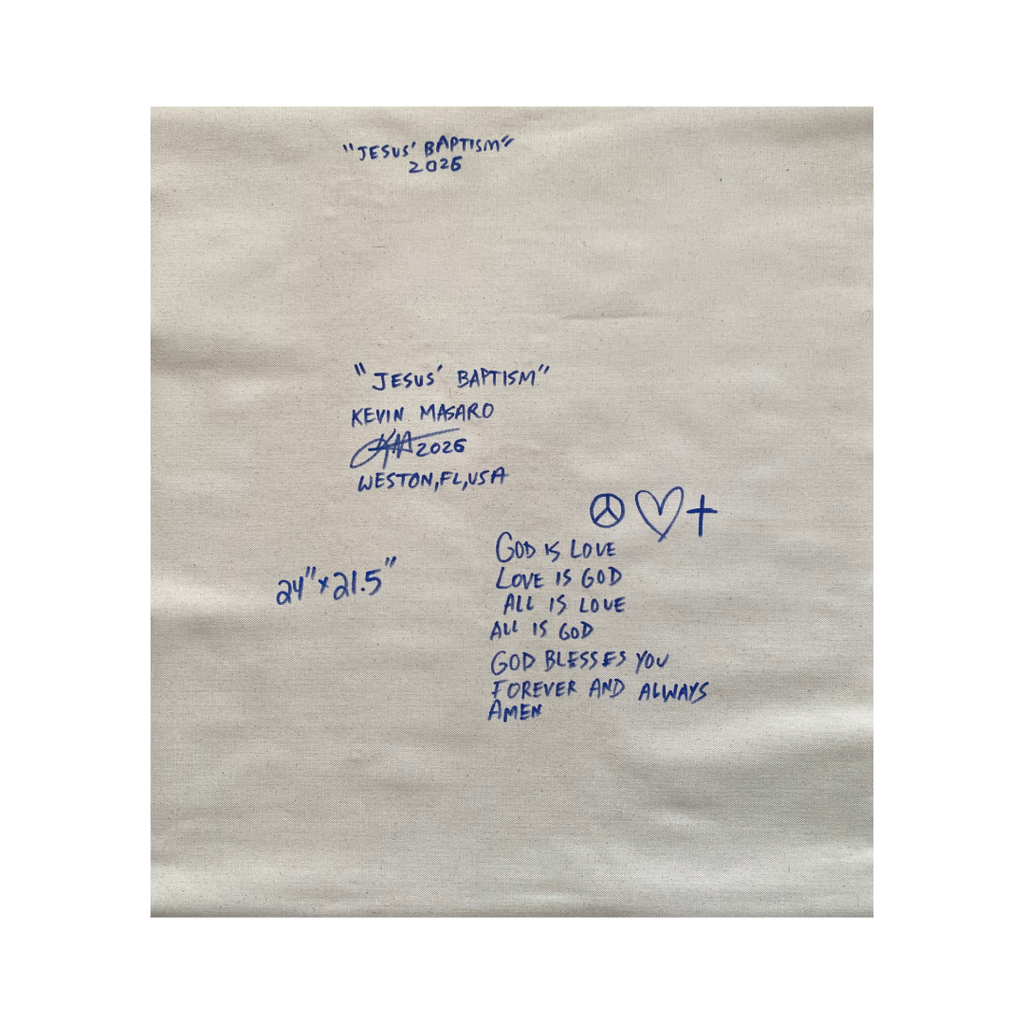 "JESUS' BAPTISM"
2026
"JESUS' BAPTISM"
KEVIN MASARO
2026
WESTON, FL, USA
GOD IS LOVE
24" x 21.5"
LOVE IS GOD
ALL IS LOVE
ALL IS GOD
GOD BLESSES YOU
FOREVER AND ALWAYS
AMEN